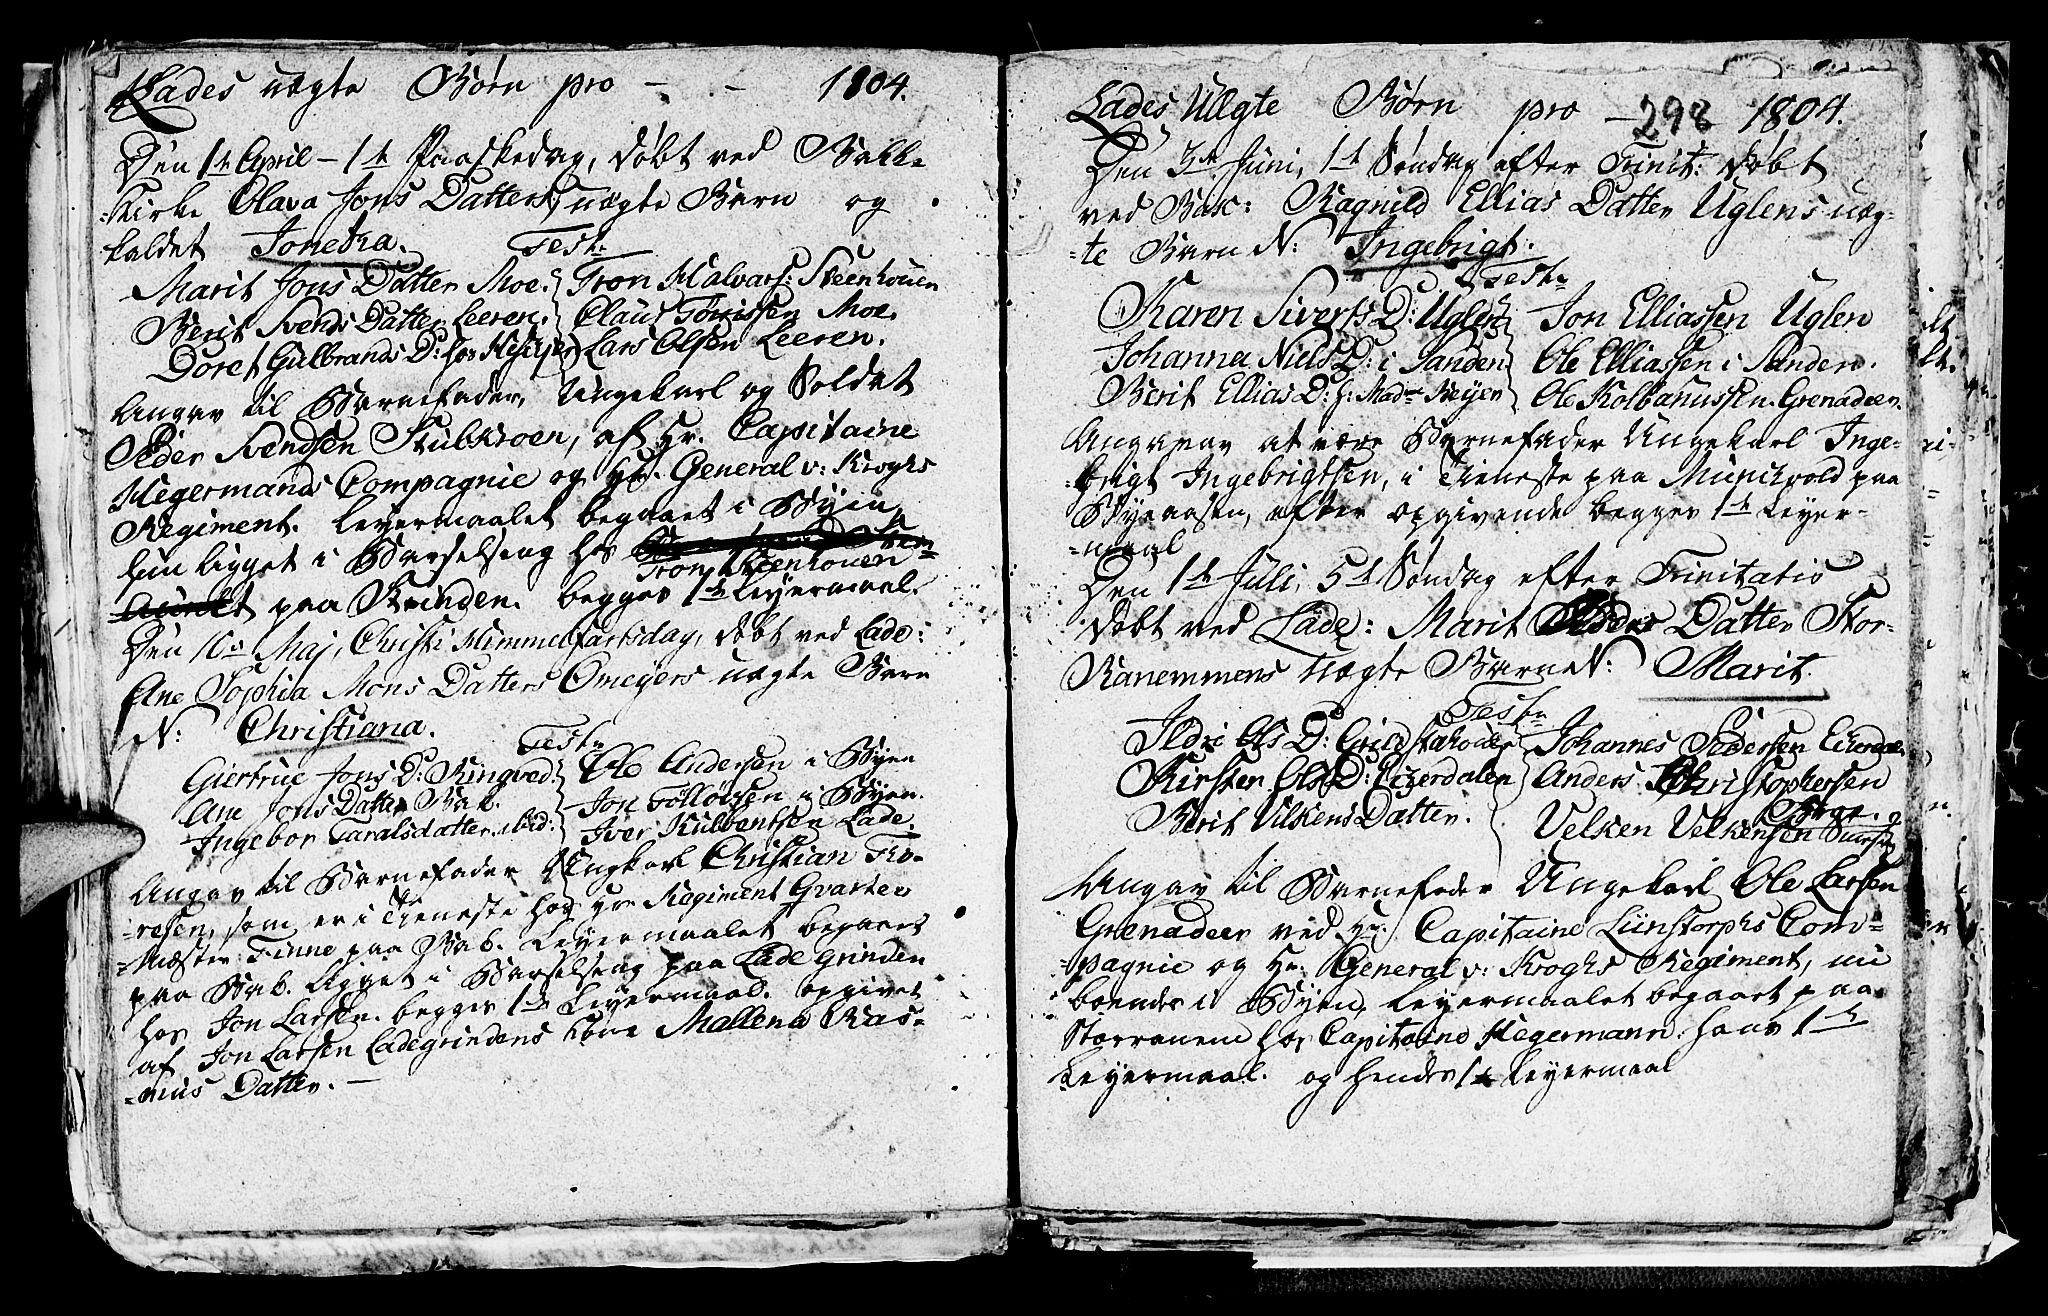 Lades uægte Børn pro - - 1804.
Den 1te April - 1te Paaskedag, døbt ved Bakke
-Kirke Olava Jons Datters uægte Barn og
kaldet Jonetta.
Test:
Marit Jons Datter Moe. Tron Halvors: Steenhouen
Berit Svends Datter Leeren. Claus Tønissen Moe.
Doret Gulbrands D: hos Lars Olsen Leeren.
Angav til Barnefader, Ungekarl og Soldat
Peder Svendsen Stubskoen, af Hr. Capitaine
Hegermands Compagnie og Hr. General v: Kroghs
Regiment. Leyermaalet begaaet i Byen,
hun ligget i Barselseng hos
Tron Steenhouen
paa Strinden. begges 1te Leyermaal.
Den 10de Maj, Christi Himmelfartsdag, døbt ved Lade:
Ane Sophia Mons Datters Omeyers uægte Barn
N: Christiana.
Test:
Giertrue Jons D: Ringved Ole Andersen i Byen
Ane Jons Datter Bab. Jon Tøllovsen i Byen.
Ingebor Taralsdatter. ibid: Iver Kulbentsen Lade
Angav til Barnefader Ungkarl Christian Tho-
-resen, som er i Tieneste hos Hr. Regiment Qvarteer
-Mæster Finne paa Bab. Leyermaalet begaaet
paa Bab. ligget i Barselseng paa Lade grinden
hos Jon Larsen. begges 1te Leyermaal. opgivet
af Jon Larsen Ladegrindens Kone Mallena Ras-
-mus Datter. -
Lades Uægte Børn pro - 298 1804.
Den 3die Juni, 1te Søndag efter Trinit: døbt
ved Bak: Ragnild Ellias Datter Uglens uæg-
-te Barn N: Ingebrigt.
Test:
Karen Siverts D: Uglen Jon Elliassen Uglen
Johanna Niels D: i Sanden Ole Elliassen i Sanden.
Berit Ellias D: h: Madme Meyer Ole Kolbanussen. Grenadeer.
Angav at være Barnefader Ungekarl Inge-
-brigt Ingebrigtsen, i Tieneste paa Munchvold paa
Byeaasen, efter opgivende begges 1te Leyer-
-maal
Den 1te Juli, 5te Søndag efter Trinitatis
døbt ved Lade: Marit Peders Datter Stor-
Ranemmens uægte Barn N: Marit.
Test:
Ildri Ols D: Grildstaholden Johannes Pedersen Ekerdalen
Kirsten Ols D: Eizerdalen Anders Christophersen
Berit Vilkens Datter. Velken Velkensen
Angav til Barnefader Ungekarl Ole Larsen
Grenadeer ved Hr: Capitaine Lünstorphs Com-
-pagnie og Hr: General v: Kroghs Regiment, nu
boende i Byen, Leyermaalet begaaet paa
Storranem hos Capitaine Hegermann. hans 1te
Leyermaal. og hendes 1te Leyermaal